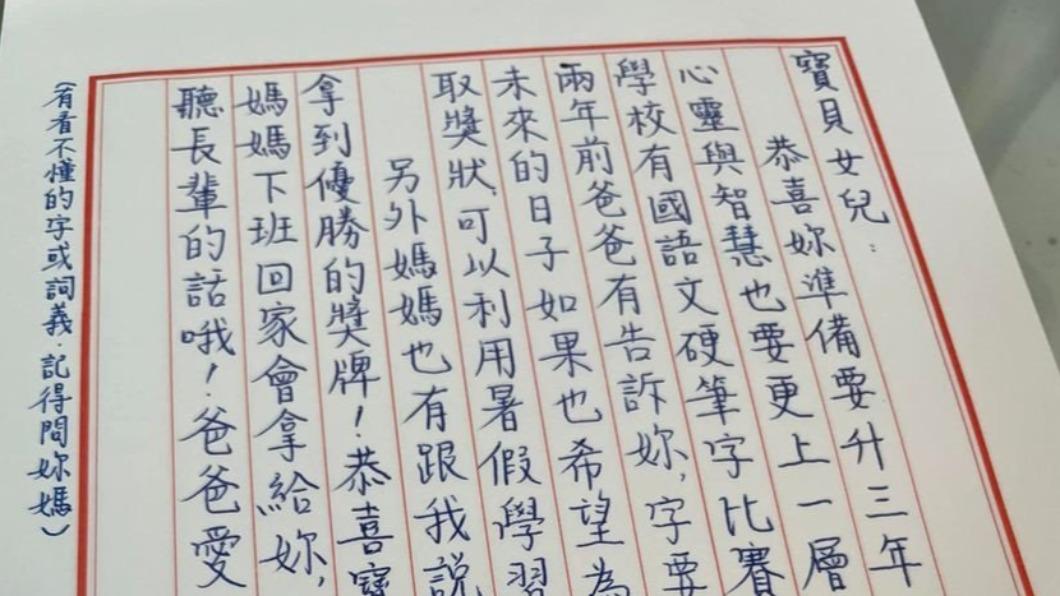 寶貝女兒：
恭喜妳準備要升三年
心靈與智慧也要更上一層
學校有國語文硬筆字比賽
兩年前爸爸有告訴妳，字要
未來的日子如果也希望為
取獎狀，可以利用暑假學習
另外媽媽也有跟我說
拿到優勝的獎牌！恭喜寶
媽媽下班回家會拿給妳，
聽長輩的話哦！爸爸愛
（有看不懂的字或詞義，記得問妳媽）